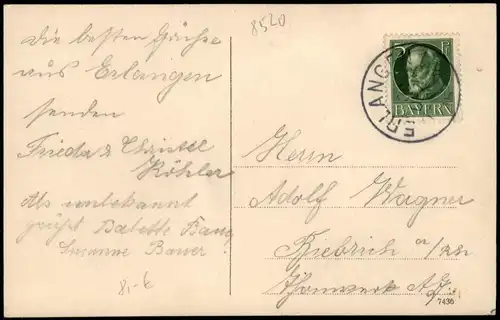 8520
Die besten Grüße
aus Erlangen
senden
Frieda & Christel
Köhler
Als unbekannt
grüßt Babette Bauer
Susanne Bauer.
81-6
5 Pf
BAYERN
ERLANGEN
Herrn
Adolf Wagner
Biebrich a/Rh
7436